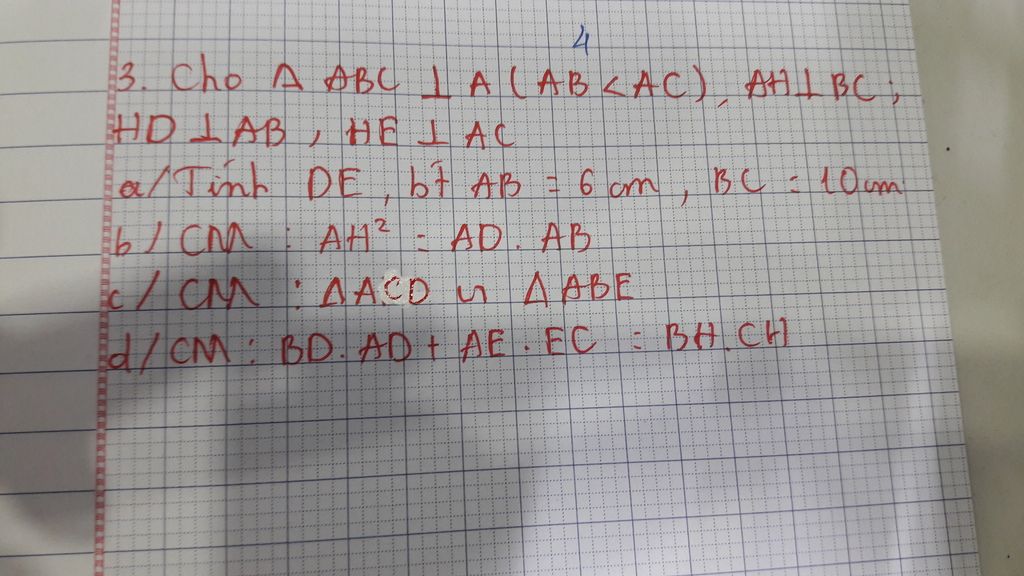 4
3. Cho Δ ABC ⊥ A (AB < AC), AH ⊥ BC;
HD ⊥ AB, HE ⊥ AC
a/ Tính DE, bt AB = 6 cm, BC = 10cm
b/ CM : AH² = AD . AB
c/ CM : ΔACD ∽ ΔABE
d/ CM : BD . AD + AE . EC = BH . CH